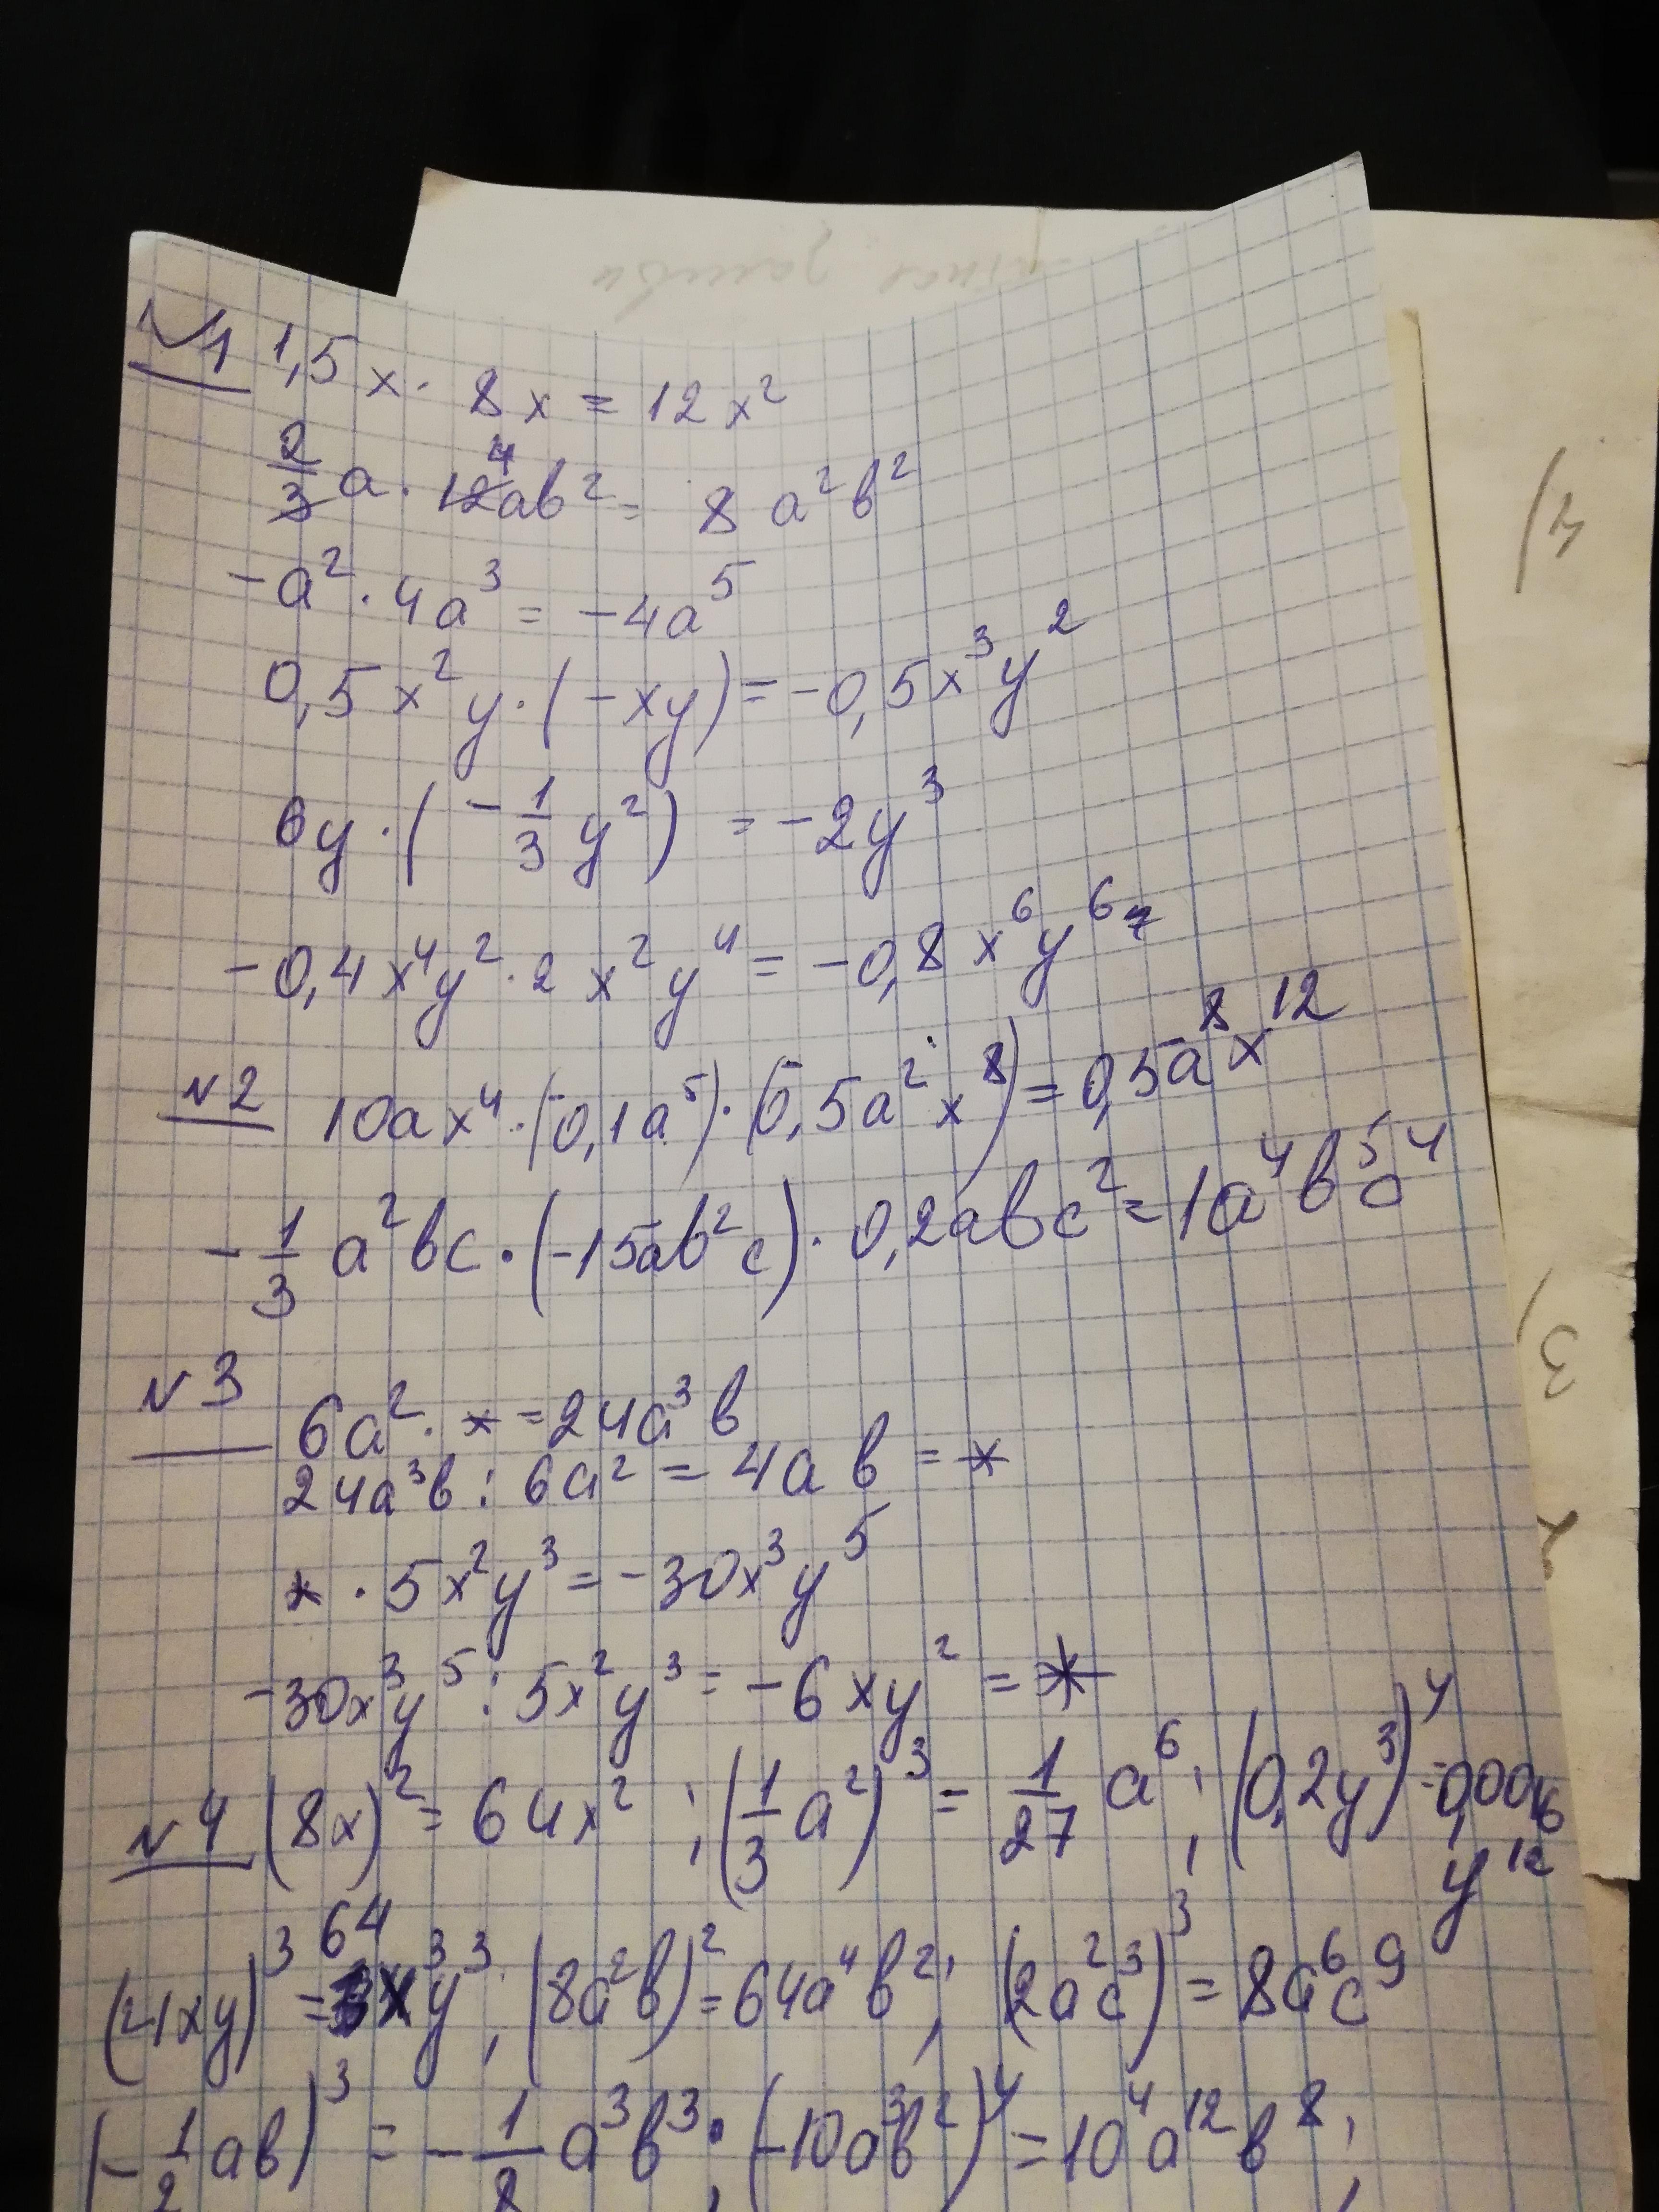 №1 1,5x · 8x = 12x²
2/3 a · 12 4 ab² = 8 a²b²
-a² · 4a³ = -4a⁵
0,5x²y · (-xy) = -0,5x³y²
6y · (-1/3 y²) = -2y³
-0,4x⁴y² · 2x²y⁴ = -0,8x⁶y⁶
№2 10ax⁴ · (-0,1a⁵) · (-0,5a²x⁸) = 0,5a⁸x¹²
-1/3 a²bc · (-15ab²c) · 0,2abc² = 1a⁴b⁵c⁴
№3 6a² · * = 24a³b
24a³b : 6a² = 4ab = *
* · 5x²y³ = -30x³y⁵
-30x³y⁵ : 5x²y³ = -6xy² = *
№4 (8x)² = 64x² ; (1/3 a²)³ = 1/27 a⁶ ; (0,2y³)⁴ = 0,0016
y¹²
(4xy)³ = 64x³y³ ; (8a²b)² = 64a⁴b² ; (2a²c³)³ = 8a⁶c⁹
(-1/2 ab)³ = -1/8 a³b³ ; (-10a³b²)⁴ = 10⁴a¹²b⁸ ;